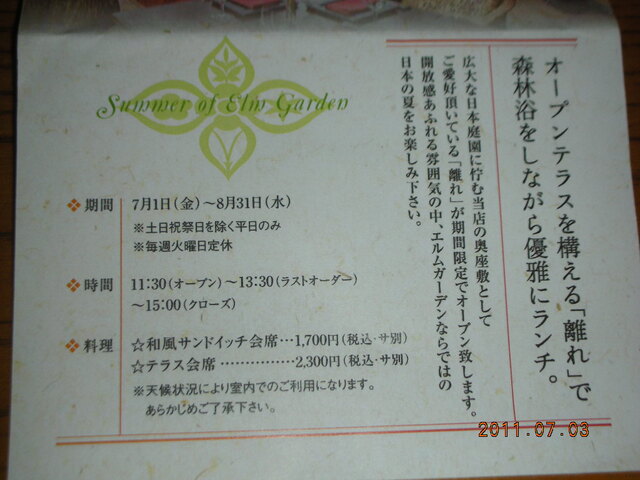 オープンテラスを構える「離れ」で
森林浴をしながら優雅にランチ。
広大な日本庭園に佇む当店の奥座敷として
ご愛好頂いている「離れ」が期間限定でオープン致します。
開放感あふれる雰囲気の中、エルムガーデンならではの
日本の夏をお楽しみ下さい。
Summer of Elm Garden
❖ 期間 7月1日(金)～8月31日(水)
※土日祝祭日を除く平日のみ
※毎週火曜日定休
❖ 時間 11:30(オープン)～13:30(ラストオーダー)
～15:00(クローズ)
❖ 料理 ☆和風サンドイッチ会席…1,700円(税込・サ別)
☆テラス会席……………2,300円(税込・サ別)
※天候状況により室内でのご利用になります。
あらかじめご了承下さい。
2011.07.03